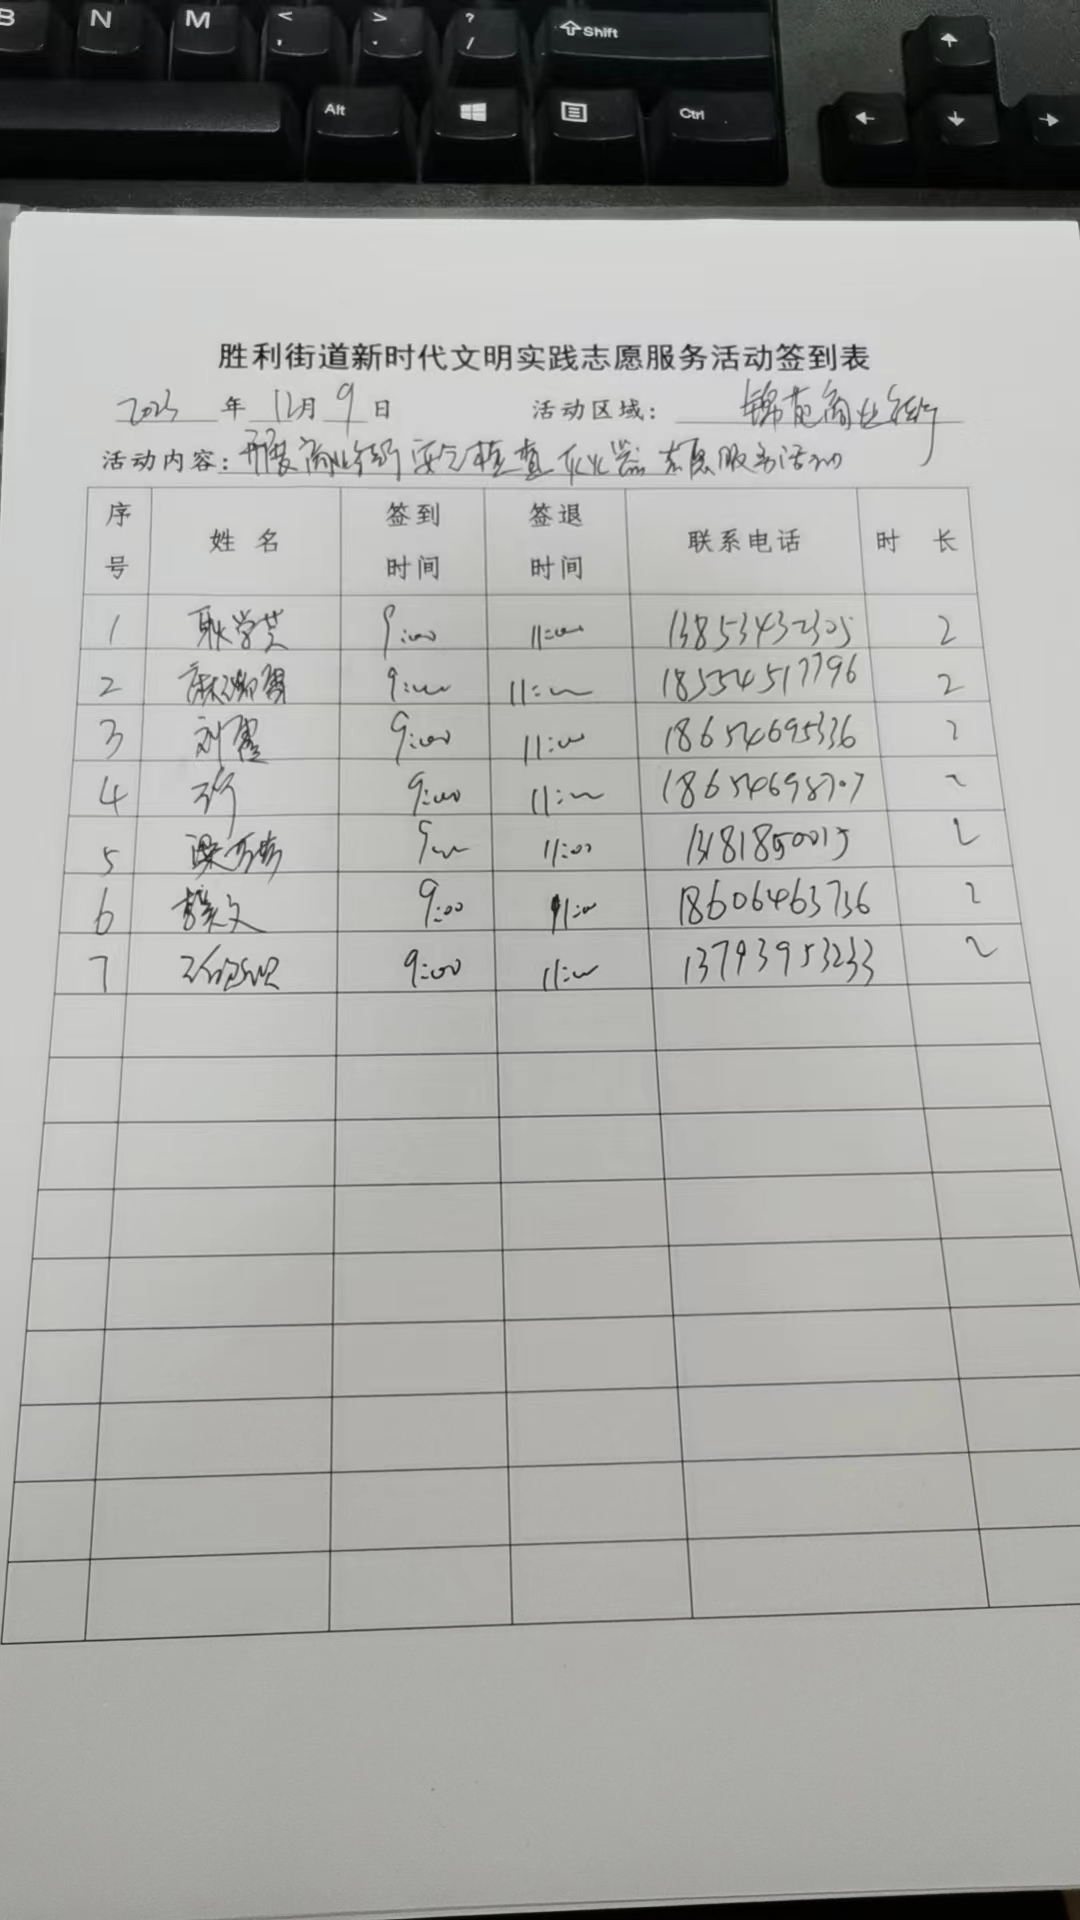 B N M < , > . ? / Shift
Alt Ctrl
胜利街道新时代文明实践志愿服务活动签到表
2023 年 12月 9 日 活动区域: 锦苑商业街
活动内容: 开展商业街安全检查灭火器志愿服务活动
序号 姓名 签到时间 签退时间 联系电话 时长
1 耿学芝 9:00 11:00 13853432305 2
2 9:00 11:00 18554517796 2
3 刘霞 9:00 11:00 18654695336 2
4 9:00 11:00 18654698707 2
5 9:00 11:00 2
6 9:00 11:00 18606463736 2
7 9:00 11:00 13793953233 2